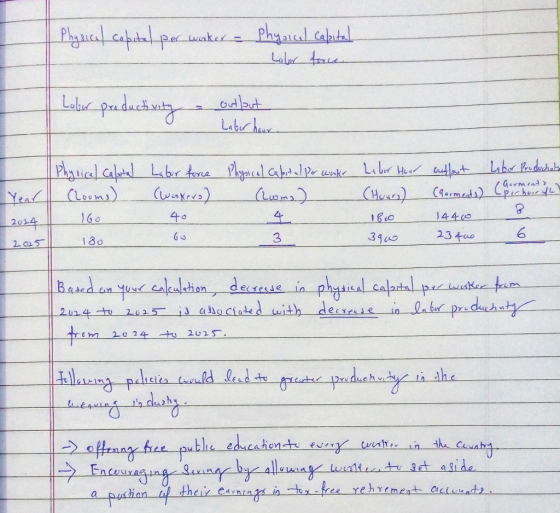 Physical capital per worker = Physical Capital
Labor force
Labor productivity = output
Labor hour
Physical Capital Labor force Physical Capital Per worker Labor Hour output Labor Productivity
Year (Looms) (Workers) (Looms) (Hours) (Garments) (Garments per hour of L)
2024 160 40 4 1800 14400 8
2025 180 60 3 3900 23400 6
Based on your calculation, decrease in physical capital per worker from
2024 to 2025 is associated with decrease in labor productivity
from 2024 to 2025.
Following policies would lead to greater productivity in the
weaving industry.
→ offering free public education to every worker in the country.
→ Encouraging saving by allowing workers to set aside
a portion of their earnings in tax-free retirement accounts.